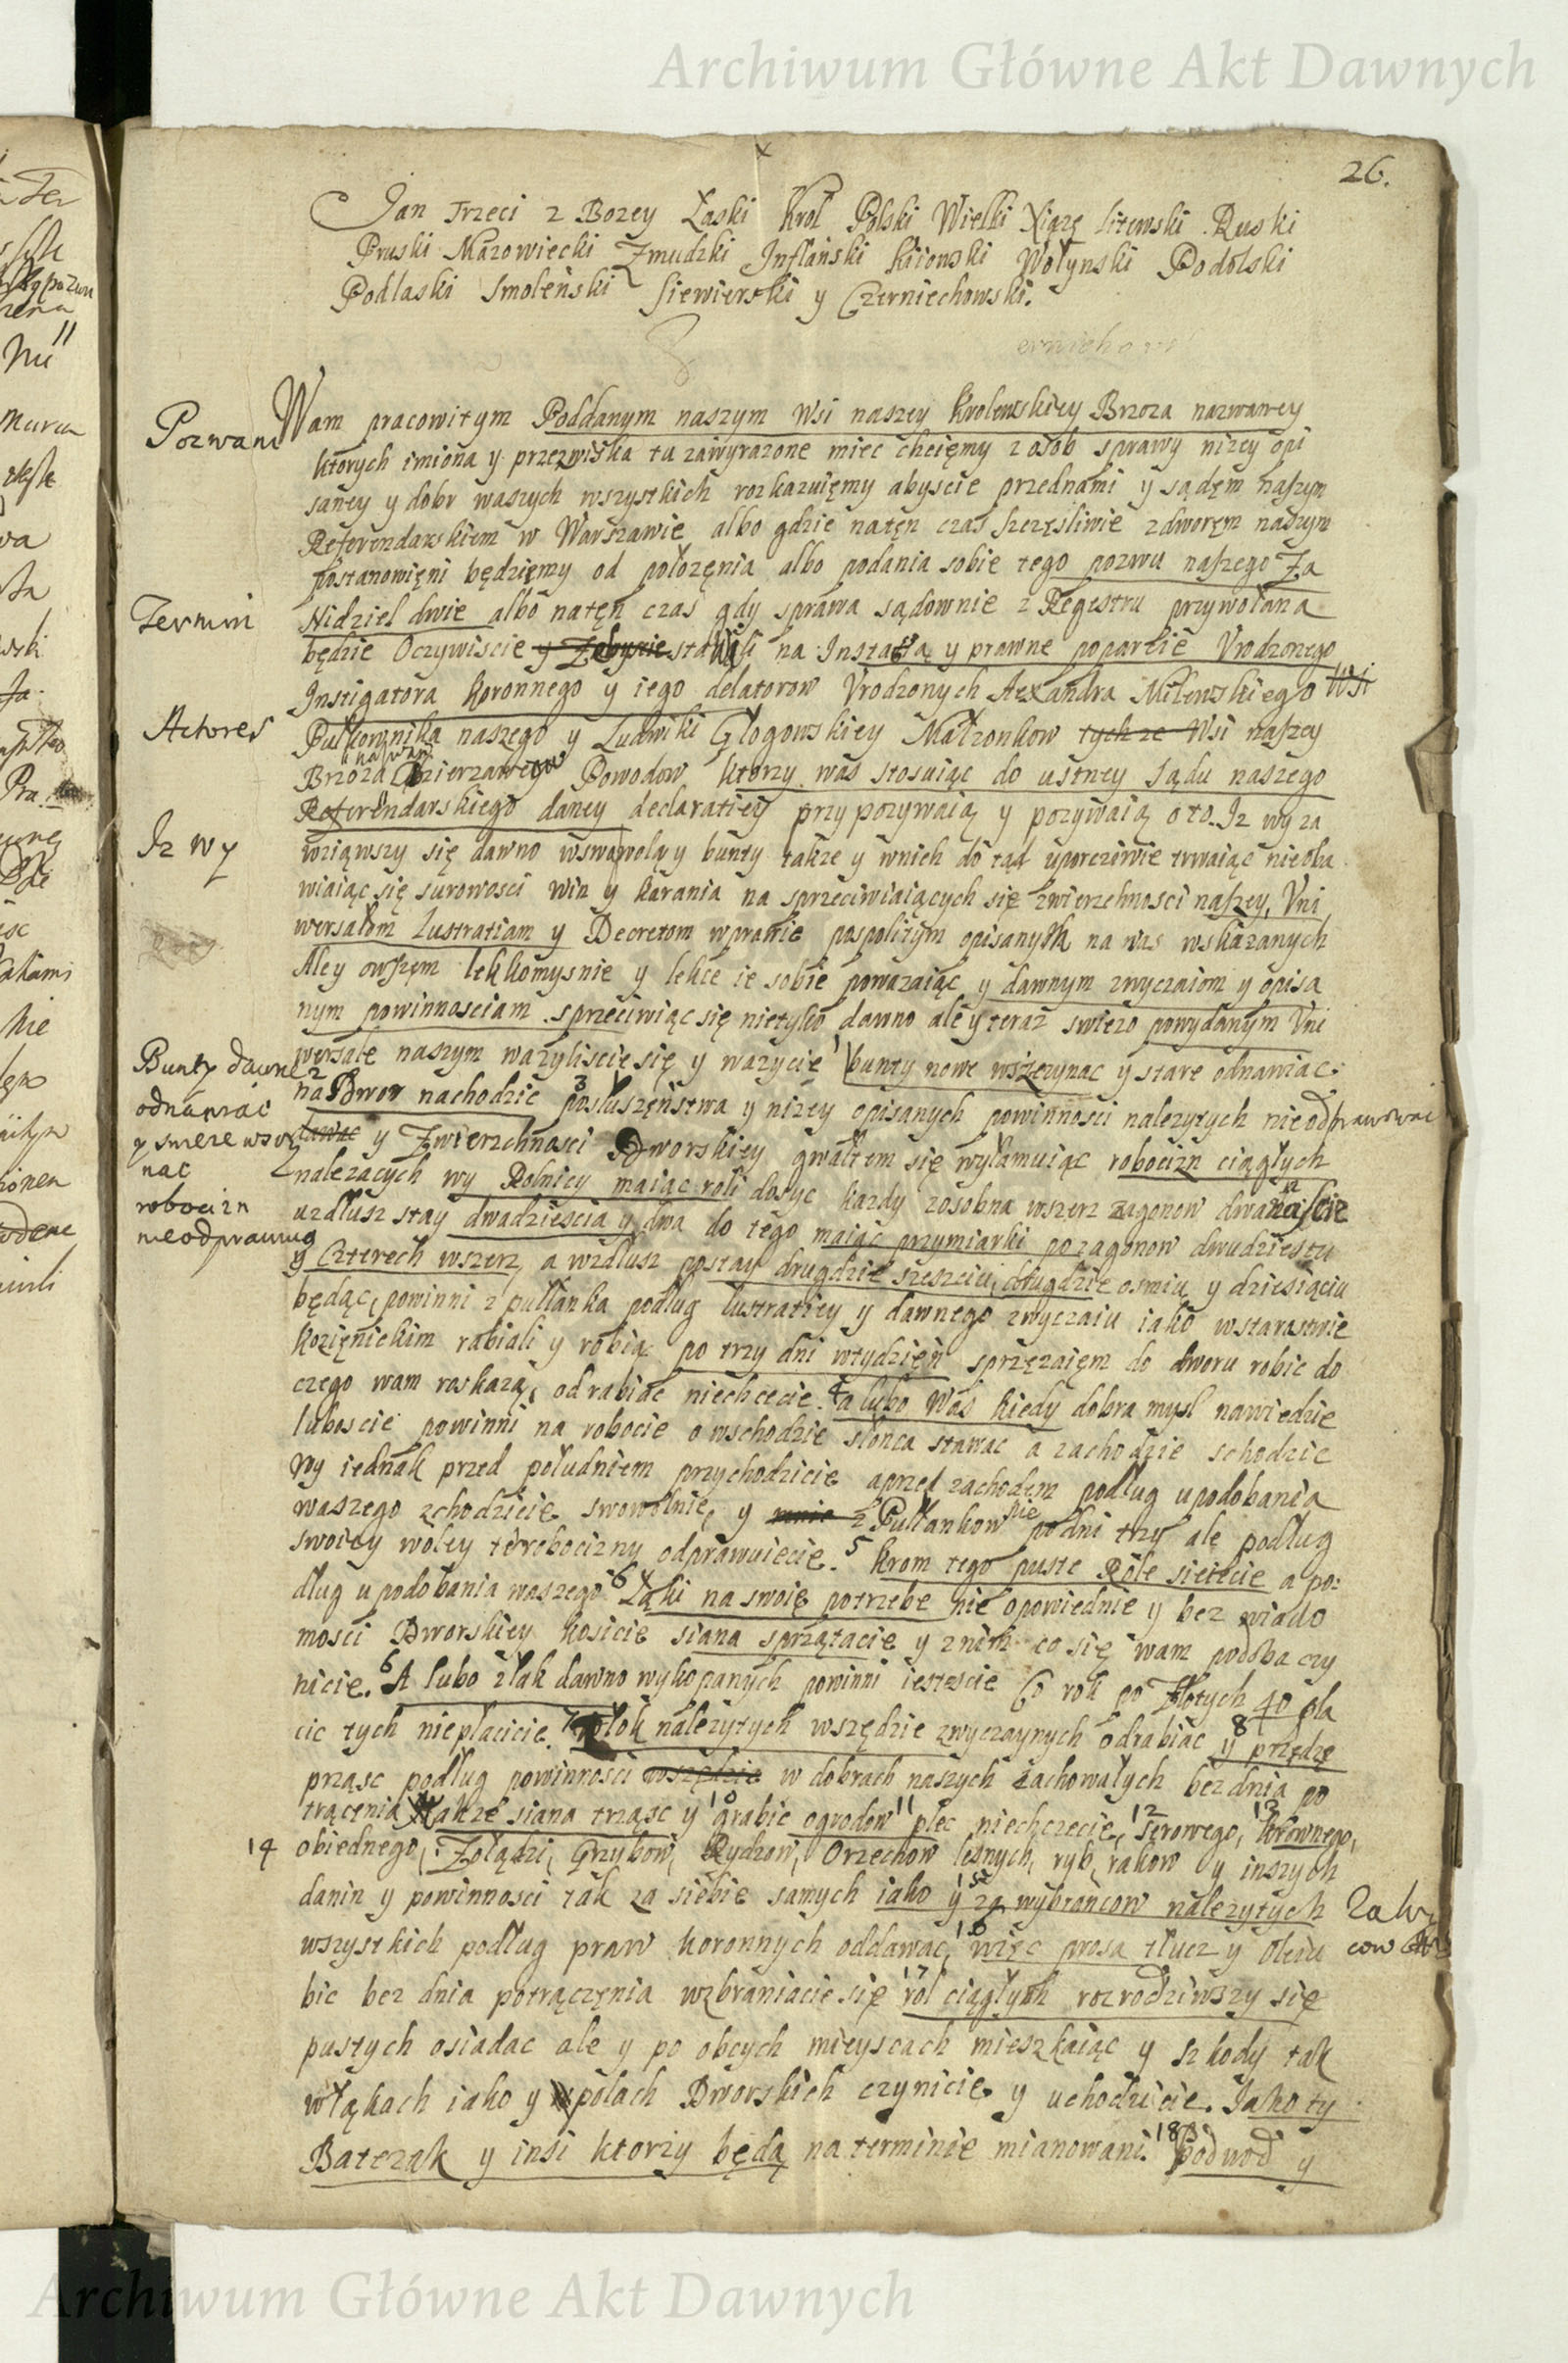 Archiwum Główne Akt Dawnych
26.
Jan Trzeci z Bozey Łaski Krol Polski Wielki Xiązę Litewski Ruski
Pruski Mazowiecki Zmudzki Inflański Kiiowski Wołynski Podolski
Podlaski Smoleński Siewierski y Czerniechowski.
Pozwani
Wam pracowitym Poddanym naszym Wsi naszey Krolewskiey Brzoza nazwaney
ktorych imiona y przezwiska tu zawyrazone miec chcięmy z osob sprawy nizey opi
saney y dobr waszych wszystkich rozkazuięmy abyscie przednami y sądęm naszym
Referendarskiem w Warszawie albo gdzie natęn czas szczęsliwie zdworęm naszym
postanowięni będzięmy od połozęnia albo podania sobie tego pozwu naszego Za
Termin
Nidziel dwie albo natęn czas gdy sprawa sądownie z Regestru przywołana
będzie Oczywiscie y stawili na Instatią y prawne poparcie Vrodzonego
Instigatora Koronnego y iego delatorow Vrodzonych Alexandra Milewskiego Wsi
Actores
Pułkownika naszego y Ludwiki Głogowskiey Małzonkow tych ze Wsi naszey
Brzoza nazwaney Dzierzawcow Powodow ktorzy was stosuiąc do ustney Sądu naszego
Referendarskiego daney declaratiey przypozywaią y pozywaią oto. Iz wy za
Iz wy
wziąwszy się dawno wswawolą y bunty takze y wnich do tąd uporczywie trwaiąc nieoba
wiaiąc się surowosci win y karania na sprzeciwiaiących się zwierzchnosci naszey, Vni
wersałom Lustratiam y Decretom wprawie pospolitym opisanych na was wskazanych
Aley owszęm lekkomysnie y lekce ie sobie powazaiąc y dawnym zwyczaiom y opisa
nym powinnosciam sprzeciwiąc się nietylko dawno ale y teraz swiezo powydanym Vni
wersale naszym wazyliscie się y wazycie 1 bunty nowe wszczynac y stare odnawiac.
Bunty dawne
odnawiac
y swieze wszczy
nac
robocizn
nieodprawuią
2 na Dwor nachodzic 3 posłuszęnstwa y nizey opisanych powinnosci nalezytych nieodprawowac
y Zwierzchnosci Dworskiey gwałtem się wyłamuiąc robocizn ciągłych
nalezacych wy Rolnicy maiąc roli dosyc kazdy zosobna wszerz zagonow dwanascie 12
uzdłusz stay dwadziescia y dwa do tego maiąc przymiarki po zagonow dwudziestu
y Czterech wszerz, a wzdłusz po stay drugdzie szesciu, drugdzie osmiu y dziesiąciu
będąc, powinni z pułłanka podług lustratiey y dawnego zwyczaiu iako wstarostwie
Kozięnickim rabiali y robią po trzy dni wtydzięń sprzęzaięm do dworu robic do
czego wam roskazą, odrabiac niechcecie. 4 a lubo Was kiedy dobra mysl nawiedzie
luboscie powinni na robocie o wschodzie słonca stawac a zachodzie schodzic
wy iednak przed południem przychodzicie aprzed zachodem podług upodobania
waszego zchodzicie swowolnie, y z Pułłankow nie podni trzy ale podług
swoiey woley te robocizny odprawuiecie. 5 krom tego puste Role sieiecie a po:
dług upodobania waszego 6 Łąki na swoię potrzebe nie opowiednie y bez wiado
mosci Dworskiey kosicie siana sprzątacie y znim co się wam podoba czy
nicie. 6 A lubo złak dawno wykopanych powinni iestescie Co rok po Złotych 40 pła
cic tych niepłacicie. 7 Tłok nalezytych wszędzie zwyczaynych odrabiac 8 y przędze
przasc podług powinnosci wszędzie w dobrach naszych zachowałych bez dnia po
trącenia, takze siana trząsc y 10 grabic ogrodow 11 plec niechczecie, 12 serowego, 13 krownego,
14 obiednego, Zołądzi, Grzybow, Rydzow, Orzechow lesnych, ryb, rakow y inszych
danin y powinnosci tak za siebie samych iako y 15 za wybrańcow nalezytych
wszystkich podług praw koronnych oddawac, 16 więc prosa tłucz y Oleiu
bic bez dnia potrączęnia wzbraniacie się 17 rol ciągłych rozrodziwszy się
pustych osiadac ale y po obcych mieyscach mieszkaiąc y szkody tak
włąkach iako y wpolach Dworskich czynicie y uchodzicie. Jako ty
Batczak y insi ktorzy będą na terminie mianowani. 18 podwod y
Archiwum Główne Akt Dawnych